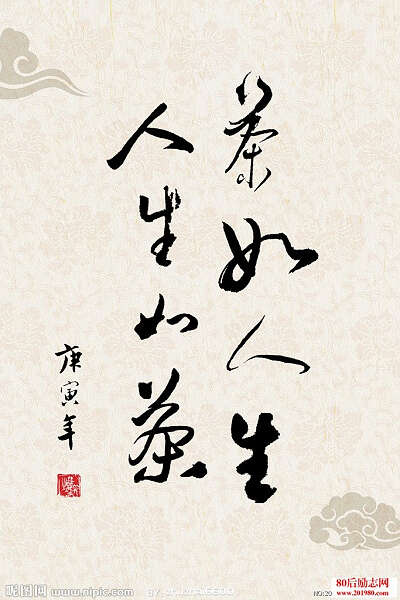 茶如人生
人生如茶
庚寅年
昵图网 www.nipic.com
80后励志网
www.201980.com